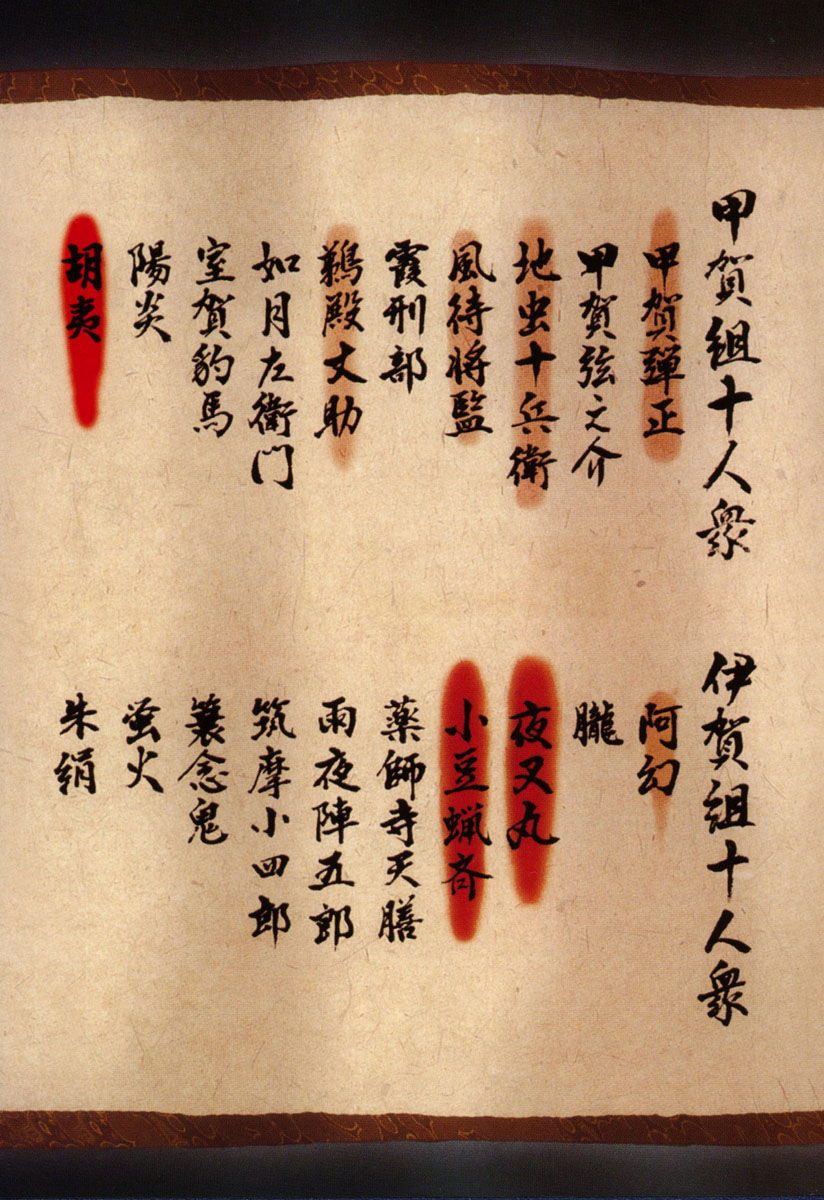 甲賀組十人衆
甲賀弾正
甲賀弦之介
地虫十兵衛
風待将監
霞刑部
鵜殿丈助
如月左衛門
室賀豹馬
陽炎
胡夷
伊賀組十人衆
阿幻
朧
夜叉丸
小豆蝋斎
薬師寺天膳
雨夜陣五郎
筑摩小四郎
簑念鬼
蛍火
朱絹